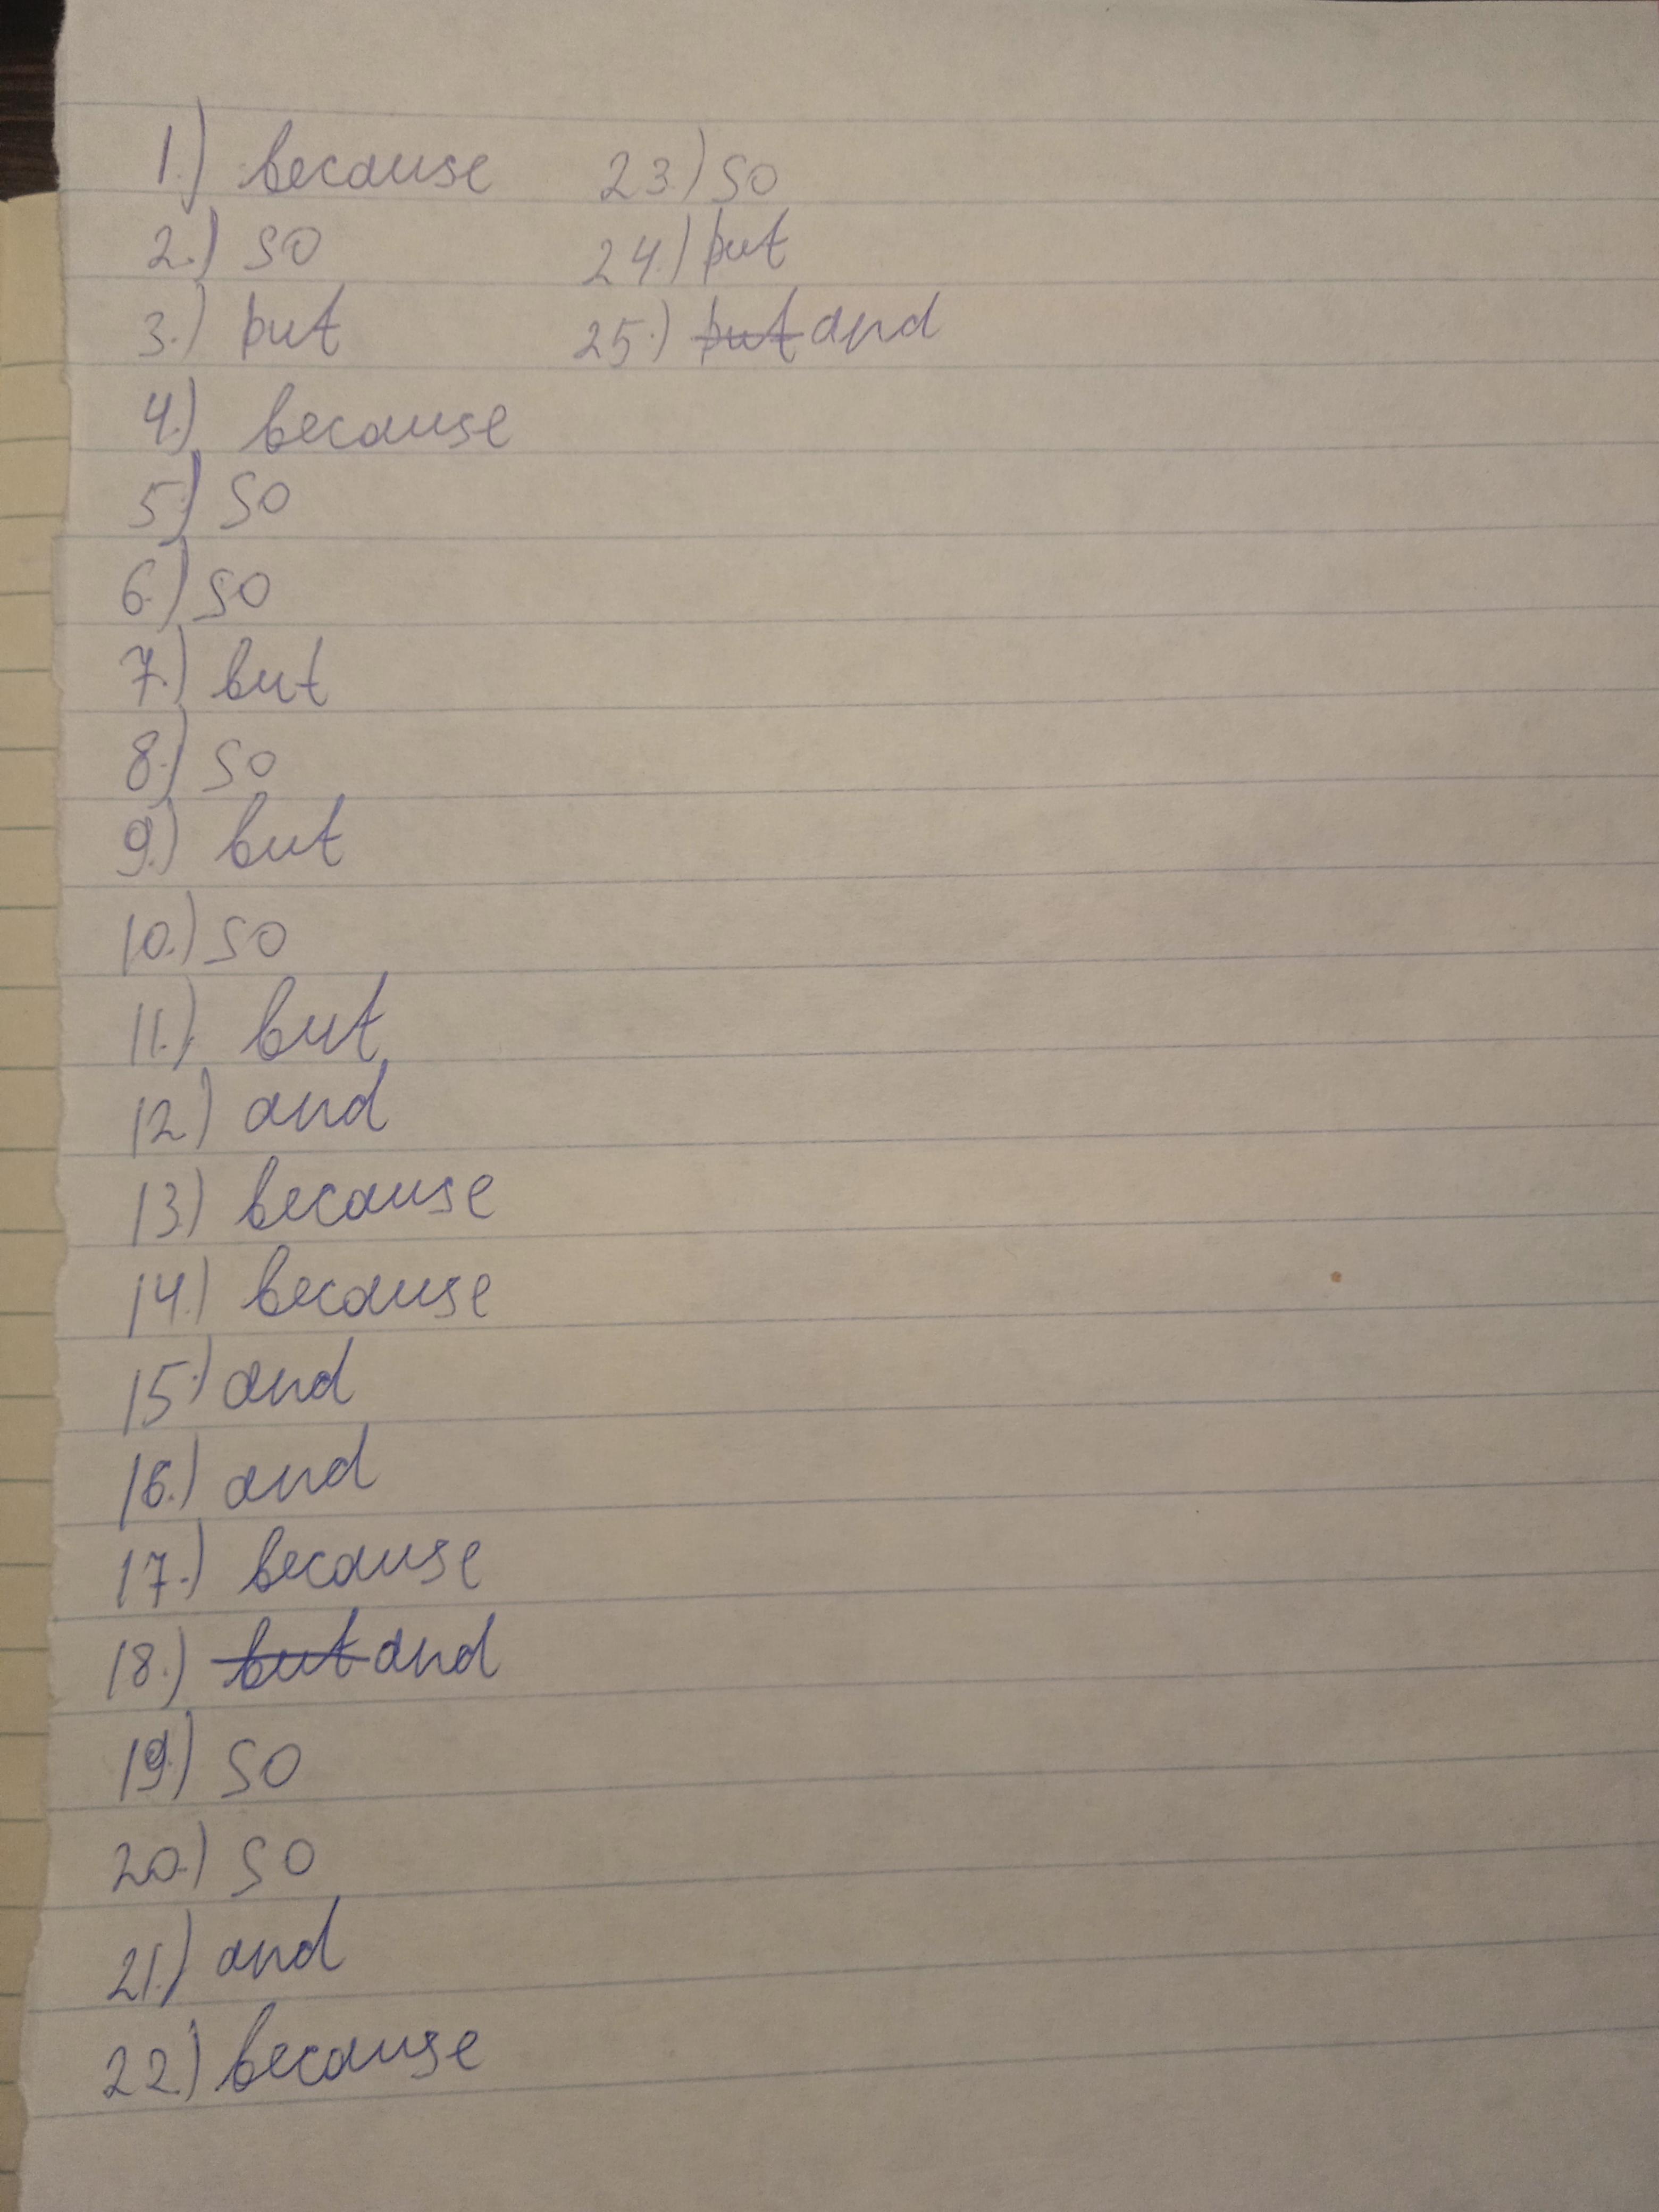 1.) because
2.) so
3.) but
4.) because
5.) so
6.) so
7.) but
8.) so
9.) but
10.) so
11.) but
12.) and
13.) because
14.) because
15.) and
16.) and
17.) because
18.) but and
19.) so
20.) so
21.) and
22.) because
23.) so
24.) but
25.) but and